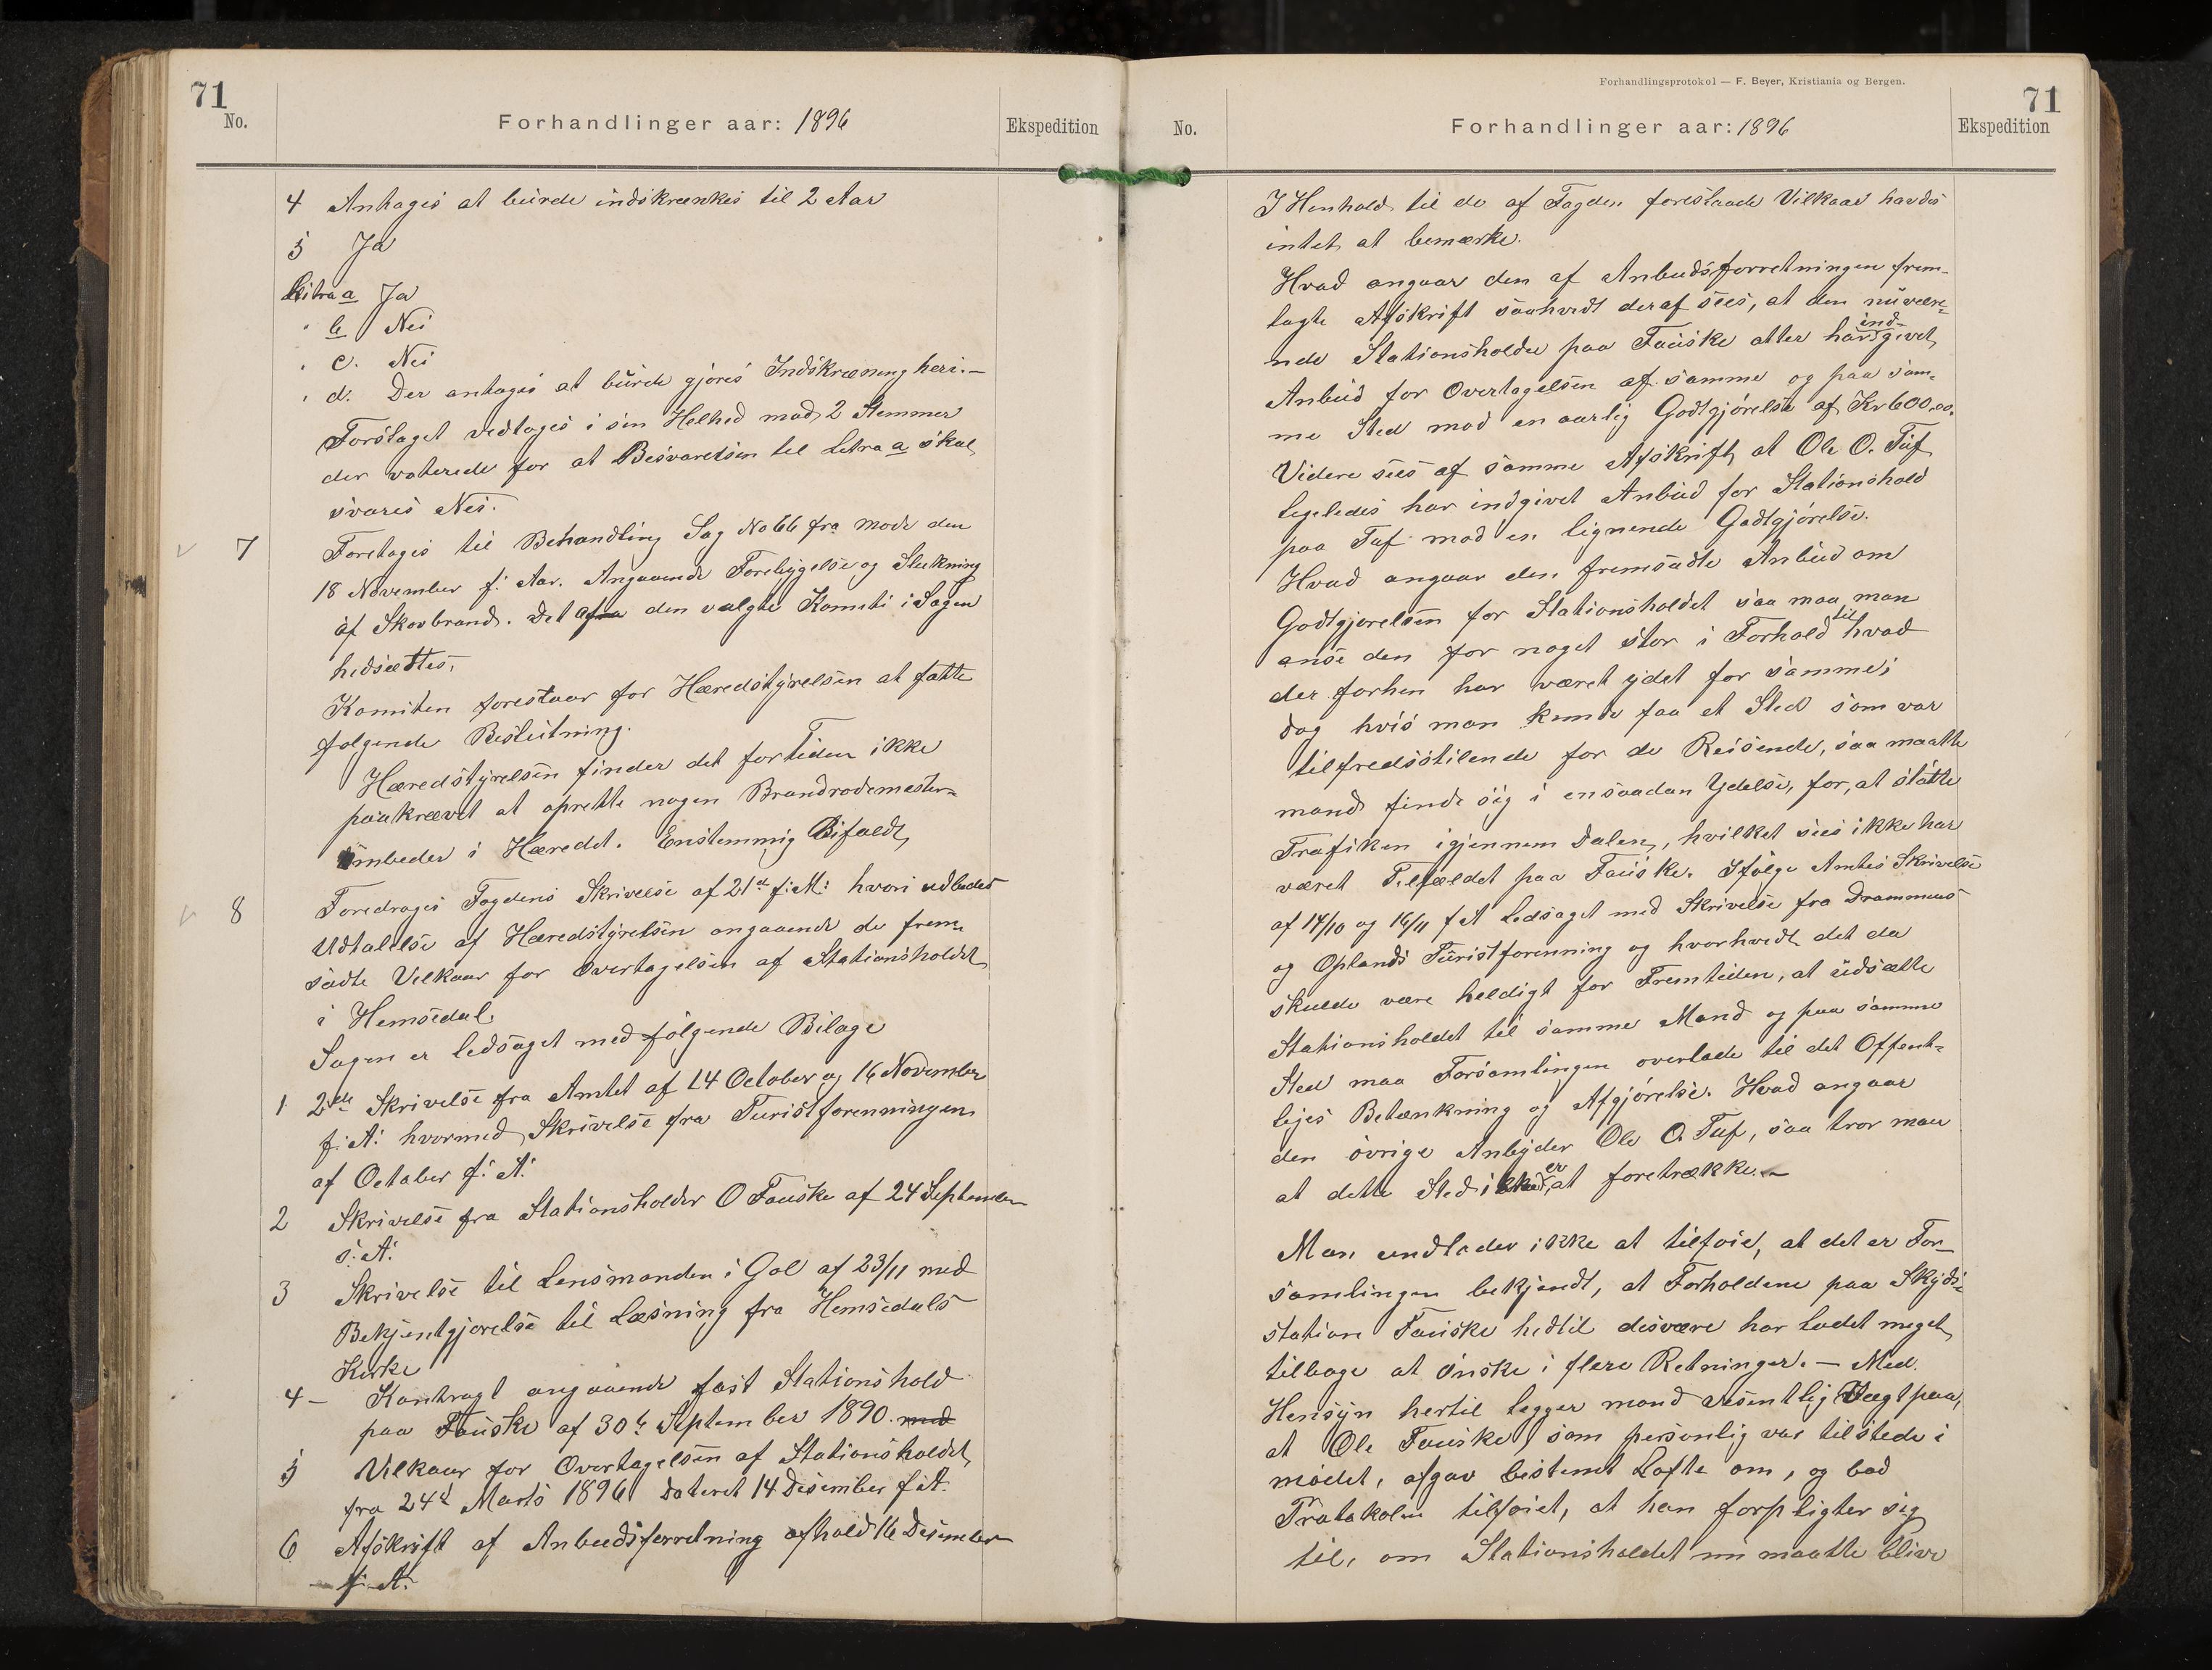 71
No.
Forhandlinger aar: 1896
Ekspedition
4 Antages at burde indskrænkes til 2 Aar
5 Ja
Litra a Ja
" b Nei
" c. Nei
" d. Der antages at burde gjøres Indskræning heri.—
Forslaget vedtages i sin Helhed mod 2 Stemmer
der voterede for at Besvarelsen til Letra a skal
svares Nei.
7 Foretages til Behandling Sag No 66 fra møde den
18 November f: Aar. Angaaende Forebyggelse og Slukning
af Skovbrand. Det af den valgte Komite i Sagen
hedsættes,
Komiten forestaar for Hæredstyrelsen at fatte
følgende Beslutning.
Hæredstyrelsen finder det fortiden ikke
paakrævet at oprette nogen Brandrodemester-
ømbeder i Hæredet. Enstemmig Bifaldt,
8 Foredroges Fogdens Skrivelse af 21de f: M: hvori udbedes
Udtalelse af Hæredstyrelsen angaaende de frem-
sadte Velkaar for overtagelsen af Stationsholdet
i Hemsedal.
Sagen er ledsaget med følgende Bilage
1 2de Skrivelse fra Amtet af 14 October og 16 November
f: A: hvormed Skrivelse fra Turistforenningen
af October f: A:
2 Skrivelse fra Stationsholder O Fauske af 24 September
s: A:
3 Skrivelse til Lensmanden i Gol af 23/11 med
Bekjentgjørelse til Læsning fra Hemsedals
Kirke
4 — Kontragt angaaende fast Stationshold
paa Fauske af 30te September 1890. med
5 Vilkaar for Overtagelsen af Stationsholdet
fra 24de Marts 1896 dateret 14 Desember f A.
6 Afskrift af Anbudsforretning afhold 16 Desember
f: A:
Forhandlingsprotokol — F. Beyer, Kristiania og Bergen.
71
No.
Forhandlinger aar: 1896
Ekspedition
I Henhold til de af Fogden foreslaade Vilkaar havdes
intet at bemærke.
Hvad angaar den af Anbudsforretningen frem-
lagte Afskrift saahvidt deraf sees, at den nuvære-
nde Stationsholder paa Fauske atter har indgivet
Anbud for Overtagelsen af samme og paa sam-
me Sted mod en aarlig Godtgjørelse af Kr 600,00.
Videre sees af samme Afskrift at Ole O. Tuf
legeledes har indgivet Anbud for Stationshold
paa Tuf mod en lignende Godtgjørelse.
Hvad angaar den fremsadte Anbud om
Godtgjørelsen for Stationsholdet saa maa man
anse den for noget stor i Forhold til hvad
der forhen har været ydet for samme;
dog hvis man kunde faa et Sted som var
tilfredsstilende for de Reisende, saa maatte
mand finde sig i ensaadan Ydelse, for, at støtte
Trafiken igjennem Dalen, hvilket sees ikke har
været Tilfældet paa Fauske. Ifølge Amtes Skrivelse
af 14/10 og 16/11 f A Ledsaget med Skrivelse fra Drammens
og Oplands Turistforenning og hvorhvidt det da
skulde være heldigt for Fremtiden, at udsætte
Stationsholdet til samme Mand og paa samme
Sted maa Forsamlingen overlade til det Offent-
leges Betænkning og Afgjørelse. Hvad angaar
den øvrige Anbyder Ole O. Tuf, saa tror man
at dette Sted ikke er at foretrække.—
Man undlader ikke at tilføie, at det er For-
samlingen bekjendt, at Forholdene paa Skyds-
station Fauske hedtil desvære har ladet meget
tilbage at ønske i flere Retninger. — Med
Hensyn hertil legger mand vesentlig Vægt paa,
at Ole Fauske, som personlig var tilstede i
mødet, afgav bestemt Løfte om, og bad
Protokolen tilføiet, at han forpligter sig
til, om Stationsholdet nu maatte blive